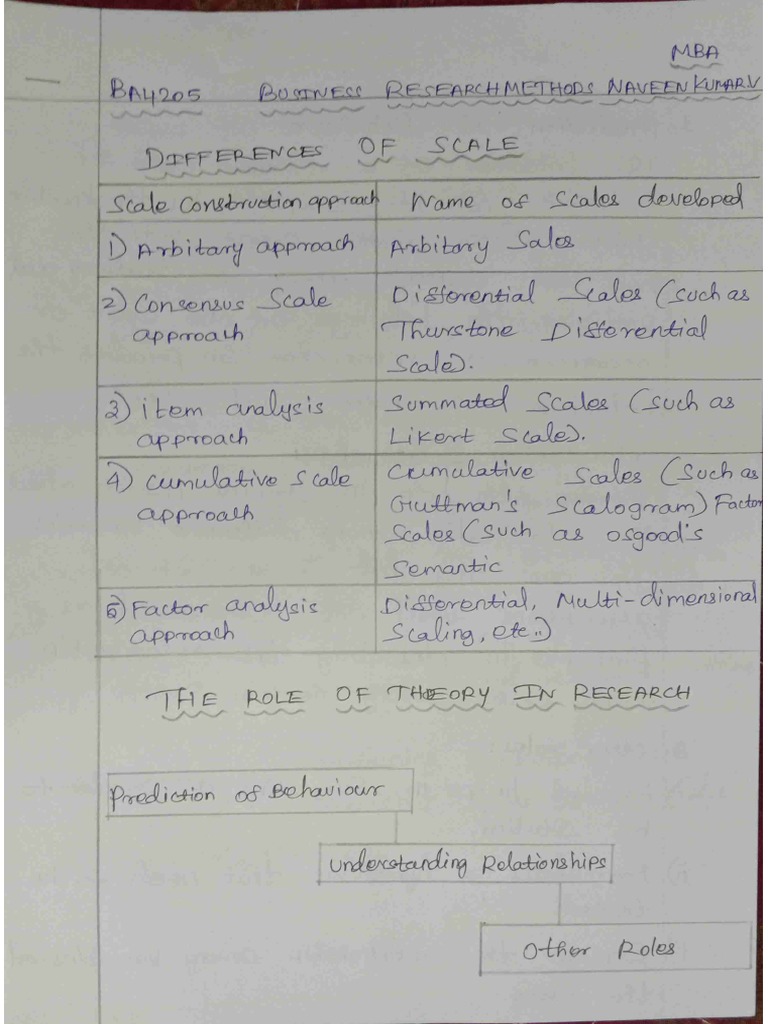 MBA
BA4205 BUSINESS RESEARCH METHODS NAVEEN KUMAR V
DIFFERENCES OF SCALE
Scale Construction approach Name of Scales developed
1) Arbitary approach Arbitary Sales
2) Consensus Scale Differential Scales (such as
approach Thurstone Differential
Scale).
3) item analysis Summated Scales (such as
approach Likert Scale).
4) cumulative scale Cumulative Scales (such as
approach Guttman's Scalogram) Factor
Scales (such as osgood's
Semantic
5) Factor analysis Differential, Multi-dimensional
approach Scaling, etc..)
THE ROLE OF THEORY IN RESEARCH
Prediction of Behaviour
Understanding Relationships
Other Roles